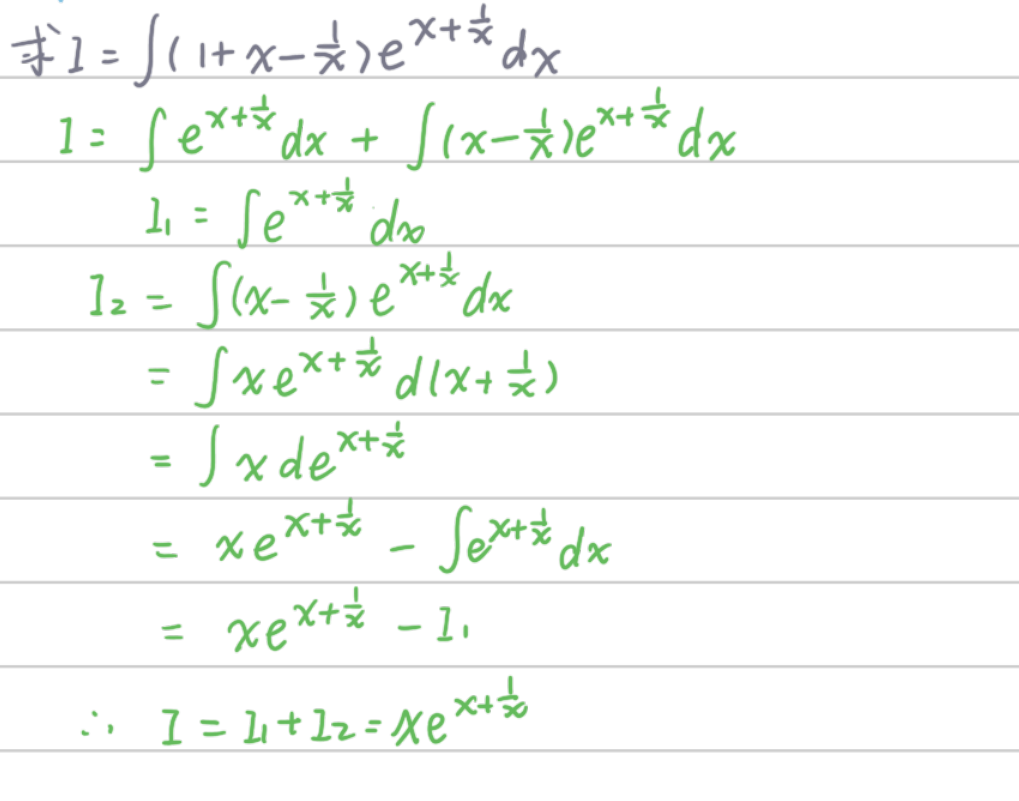 求 I = ∫(1+x-1/x)e^(x+1/x) dx
I = ∫e^(x+1/x) dx + ∫(x-1/x)e^(x+1/x) dx
I₁ = ∫e^(x+1/x) dx
I₂ = ∫(x-1/x)e^(x+1/x) dx
= ∫xe^(x+1/x) d(x+1/x)
= ∫x de^(x+1/x)
= xe^(x+1/x) - ∫e^(x+1/x) dx
= xe^(x+1/x) - I₁
∴ I = I₁+I₂ = xe^(x+1/x)